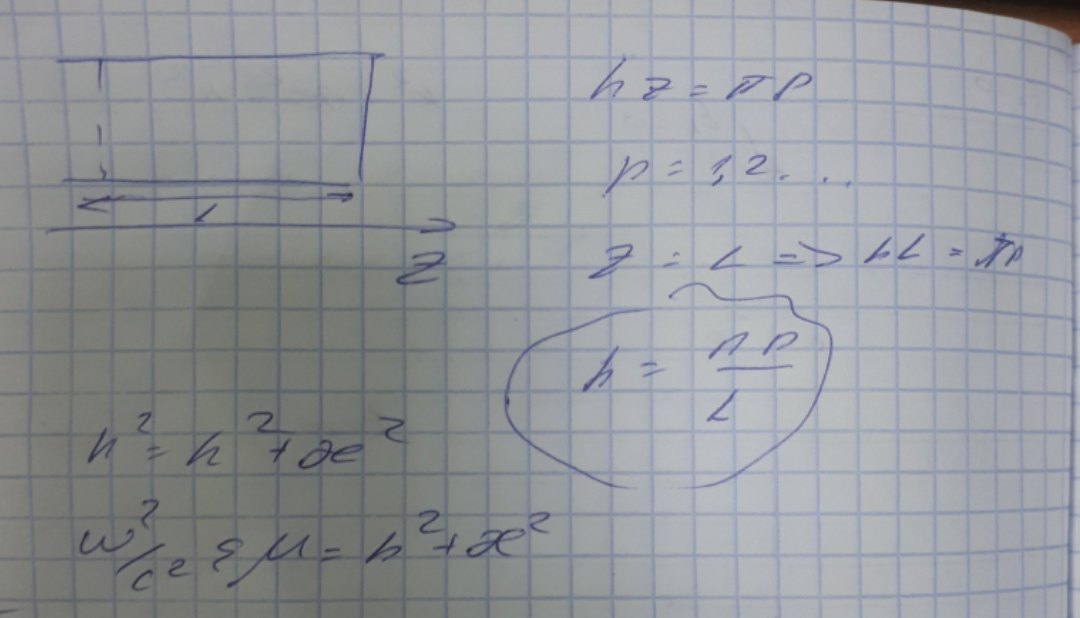 L
Z
hz = πp
p = 1, 2. ...
z = L => hL = πp
h = πp/L
k² = h² + æ²
ω²/c² εμ = h² + æ²